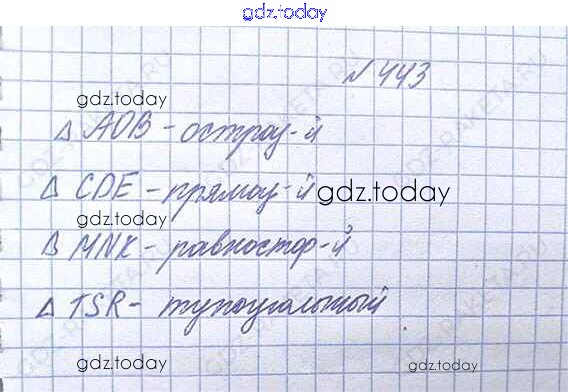 gdz.today
№ 443
gdz.today
△ АОВ - остроу-й
△ CDE - прямоу-й
gdz.today
gdz.today
△ MNK - равностор-й
△ TSR - тупоугольный
gdz.today
gdz.today